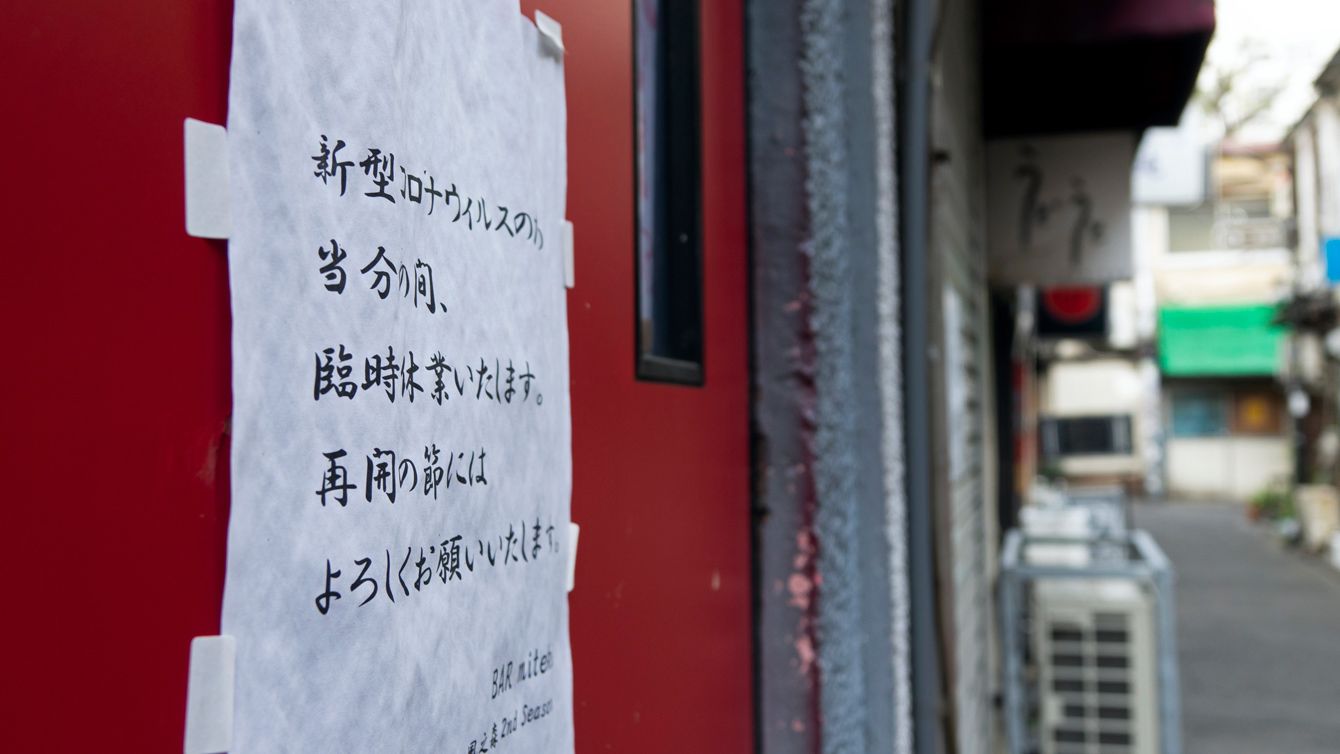 新型コロナウィルスの
当分の間、
臨時休業いたします。
再開の節には
よろしくお願いいたします。
BAR
2nd Season